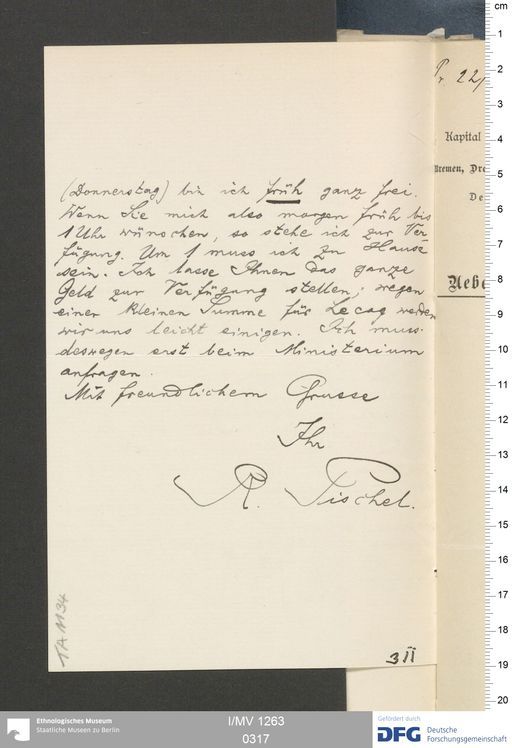 (Donnerstag) bin ich früh ganz frei.
Wenn Sie mich also morgen früh bis
1 Uhr wünschen, so stehe ich zur Ver-
fügung. Um 1 muss ich zu Hause
sein. Ich lasse Ihnen das ganze
Geld zur Verfügung stellen; wegen
einer kleinen Summe für Lecoq werden
wir uns leicht einigen. Ich muss
deswegen erst beim Ministerium
anfragen.
Mit freundlichem Grusse
Ihr
R. Pischel.
TA M34
3II
Pr 22/
Kapital
Bremen, Dre
De
Uebe
cm
1
2
3
4
5
6
7
8
9
10
11
12
13
14
15
16
17
18
19
20
Ethnologisches Museum
Staatliche Museen zu Berlin
I/MV 1263
0317
Gefördert durch
DFG Deutsche
Forschungsgemeinschaft